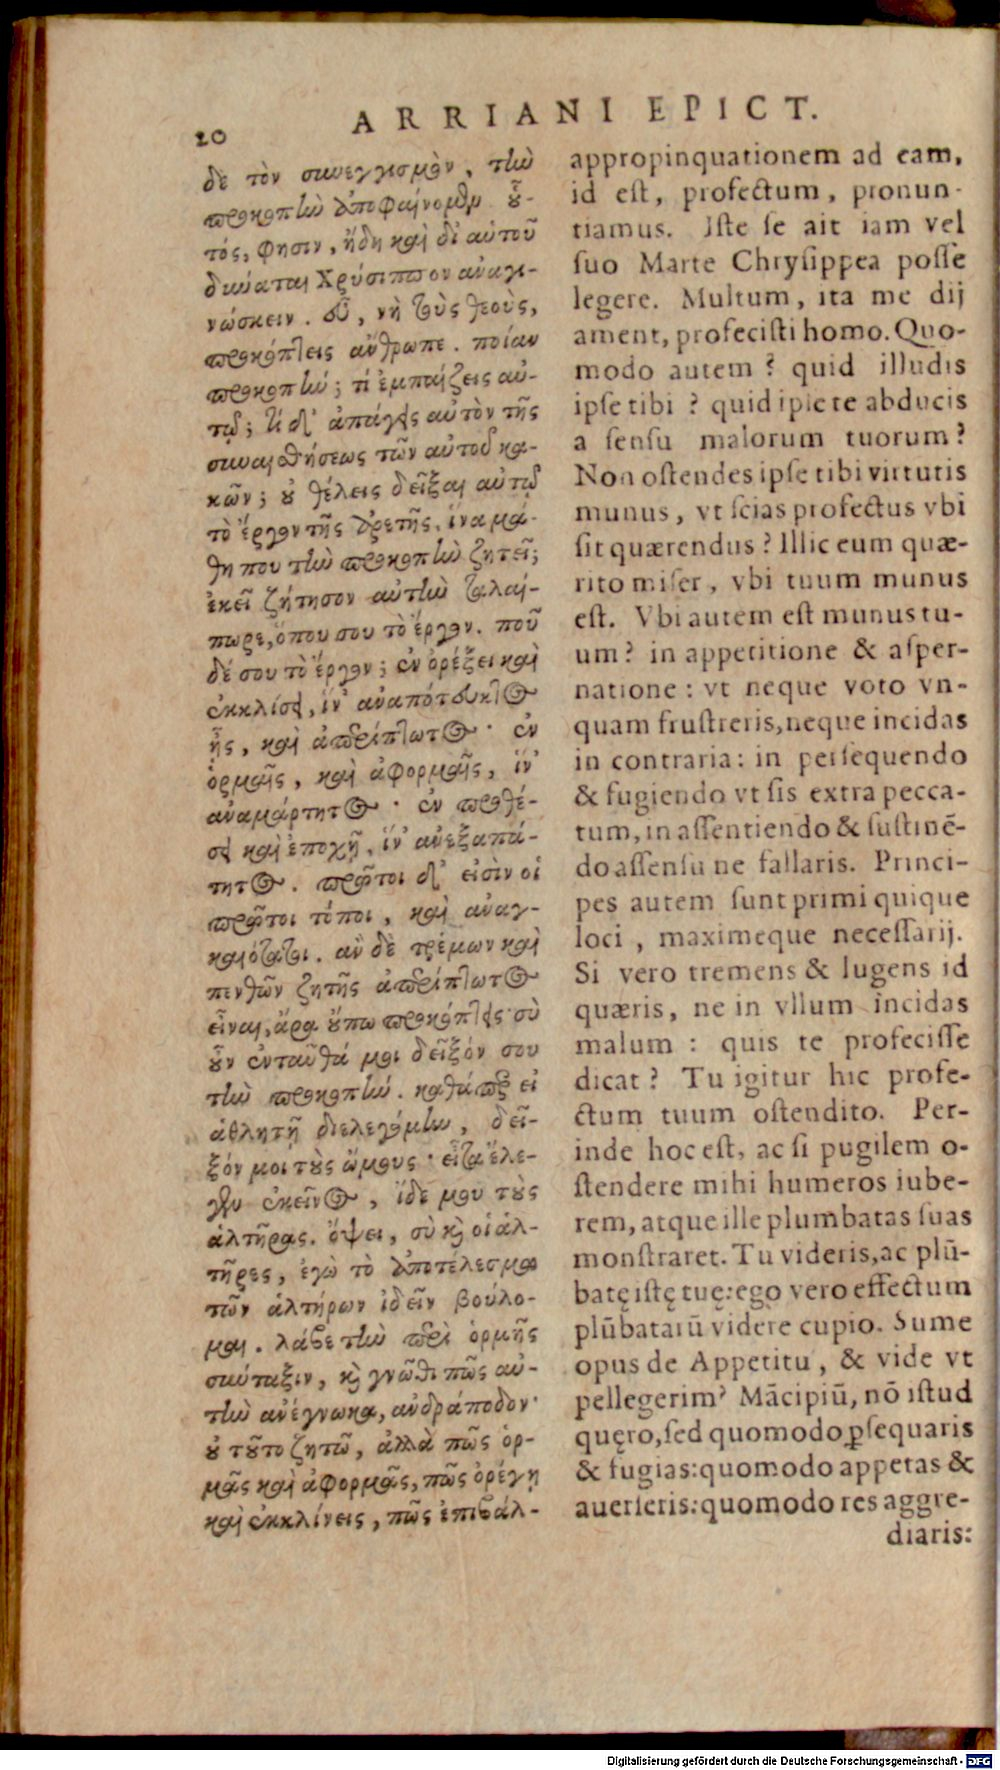 20
ARRIANI EPICT.
δὲ τὸν συνεγγισμὸν, τὴν
προκοπὴν ἀποφαίνομεν. οὗ-
τός, φησιν, ἤδη καὶ δι' αὑτοῦ
δύναται Χρύσιππον ἀναγι-
νώσκειν. εὖ, νὴ τοὺς θεοὺς,
προκόπτεις ἄνθρωπε. ποίαν
προκοπήν; τί ἐμπαίζεις αὐ-
τῷ; τί δ' ἀπάγεις αὐτὸν τῆς
συναισθήσεως τῶν αὑτοῦ κα-
κῶν; οὐ θέλεις δεῖξαι αὐτῷ
τὸ ἔργον τῆς ἀρετῆς, ἵνα μά-
θῃ που τὴν προκοπὴν ζητεῖ;
ἐκεῖ ζήτησον αὐτὴν ταλαί-
πωρε, ὅπου σου τὸ ἔργον. ποῦ
δέ σου τὸ ἔργον; ἐν ὀρέξει καὶ
ἐκκλίσει, ἵν' ἀναπότευκτος
ᾖς, καὶ ἀπερίπτωτος· ἐν
ὁρμαῖς, καὶ ἀφορμαῖς, ἵν'
ἀναμάρτητος· ἐν προθέ-
σει καὶ ἐποχῇ, ἵν' ἀνεξαπά-
τητος. πρῶτοι δ' εἰσὶν οἱ
πρῶτοι τόποι, καὶ ἀναγ-
καιότατοι. ἂν δὲ τρέμων καὶ
πενθῶν ζητῇς ἀπερίπτωτος
εἶναι, ἄρα οὔπω προκόπτεις· σὺ
οὖν ἐνταῦθά μοι δεῖξόν σου
τὴν προκοπήν. καθάπερ εἰ
ἀθλητῇ διελεγόμην, δεῖ-
ξόν μοι τοὺς ὤμους· εἶτα ἔλε-
γεν ἐκεῖνος, ἴδε μου τοὺς
ἁλτῆρας. ὄψει, σὺ καὶ οἱ ἁλ-
τῆρες, ἐγὼ τὸ ἀποτέλεσμα
τῶν ἁλτήρων ἰδεῖν βούλο-
μαι. λάβε τὴν περὶ ὁρμῆς
σύνταξιν, καὶ γνῶθι πῶς αὐ-
τὴν ἀνέγνωκα, ἀνδράποδον·
οὐ τοῦτο ζητῶ, ἀλλὰ πῶς ὁρ-
μᾷς καὶ ἀφορμᾷς, πῶς ὀρέγῃ
καὶ ἐκκλίνεις, πῶς ἐπιβάλ-
appropinquationem ad eam,
id est, profectum, pronun-
tiamus. Iste se ait iam vel
suo Marte Chrysippea posse
legere. Multum, ita me dij
ament, profecisti homo. Quo-
modo autem? quid illudis
ipse tibi? quid ipse te abducis
a sensu malorum tuorum?
Non ostendes ipse tibi virtutis
munus, vt scias profectus vbi
sit quærendus? Illic eum quæ-
rito miser, vbi tuum munus
est. Vbi autem est munus tu-
um? in appetitione & asper-
natione: vt neque voto vn-
quam frustreris, neque incidas
in contraria: in persequendo
& fugiendo vt sis extra pecca-
tum, in assentiendo & sustinē-
do assensu ne fallaris. Princi-
pes autem sunt primi quique
loci, maximeque necessarij.
Si vero tremens & lugens id
quæris, ne in vllum incidas
malum: quis te profecisse
dicat? Tu igitur hic profe-
ctum tuum ostendito. Per-
inde hoc est, ac si pugilem o-
stendere mihi humeros iube-
rem, atque ille plumbatas suas
monstraret. Tu videris, ac plū-
batę istę tuę: ego vero effectum
plūbatarū videre cupio. Sume
opus de Appetitu, & vide vt
pellegerim? Mācipiū, nō istud
quęro, sed quomodo ꝑsequaris
& fugias: quomodo appetas &
auerseris: quomodo res aggre-
diaris:
Digitalisierung gefördert durch die Deutsche Forschungsgemeinschaft - DFG